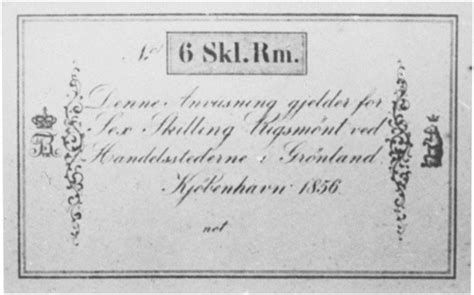 No. 6 Skl. Rm.
Denne Anviisning gjelder for
Sex Skilling Rigsmönt ved
Handelsstederne i Grönland.
Kjöbenhavn 1856.
not